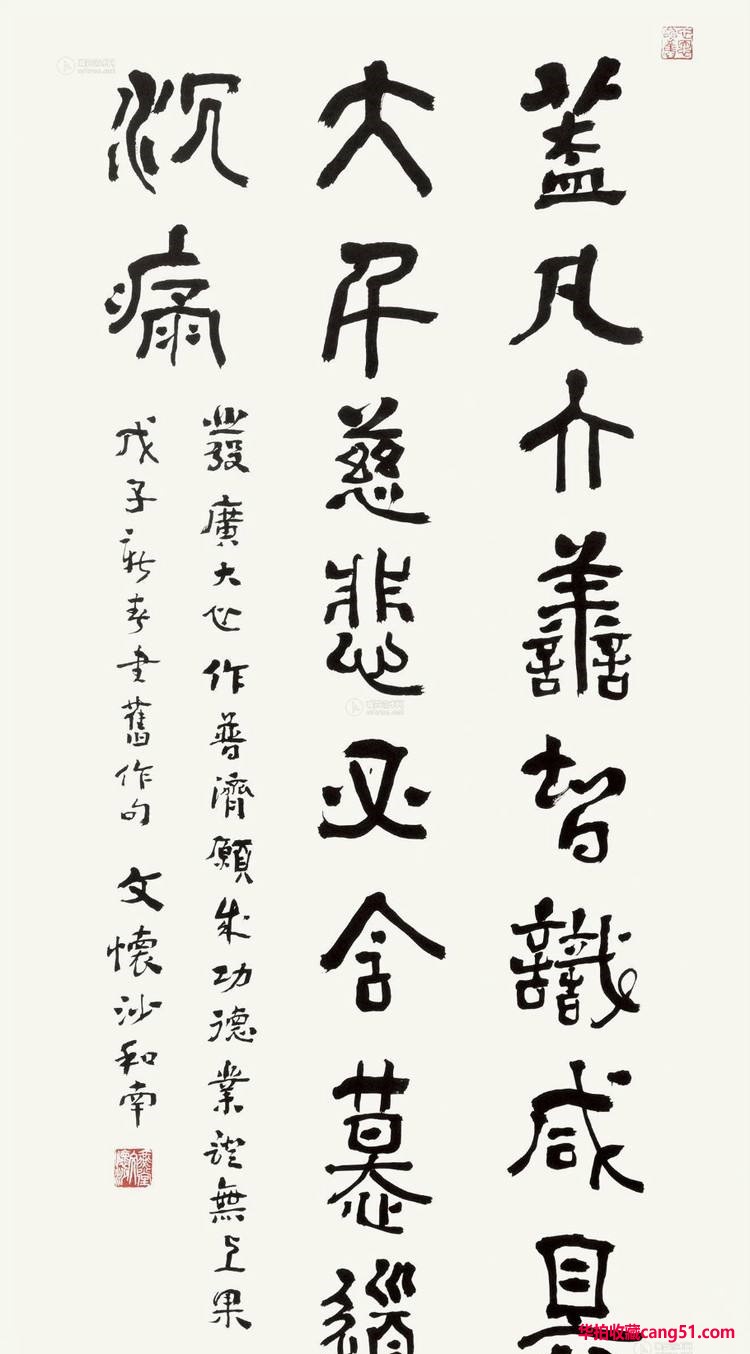 蓋凡亣譱智識咸具
大慈悲必含慕道
沉痛
發廣大心作普濟願成功德業證無上果
戊子新春書舊作句 文懷沙和南
华拍收藏cang51.com